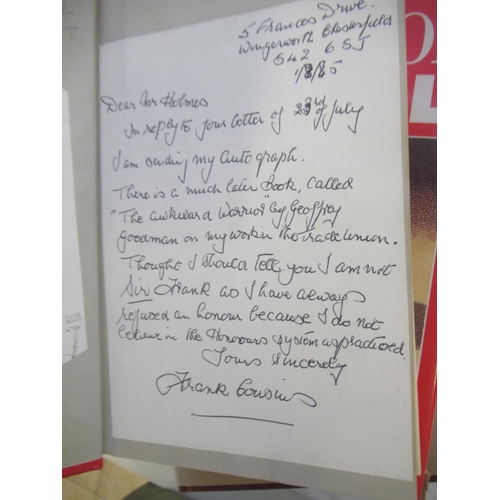 5 Frances Drive.
Wingerworth Chesterfield
S42 6SJ
1/8/85
Dear Mr Holmes
In reply to your letter of 23rd of July
I am sending my autograph.
There is a much later Book, called
"The awkward warrior" by Geoffrey
Goodman on my work in the trade union.
Thought I should tell you I am not
Sir Frank as I have always
refused an honour because I do not
believe in the Honours system as practised.
Yours sincerely
Frank Cousins